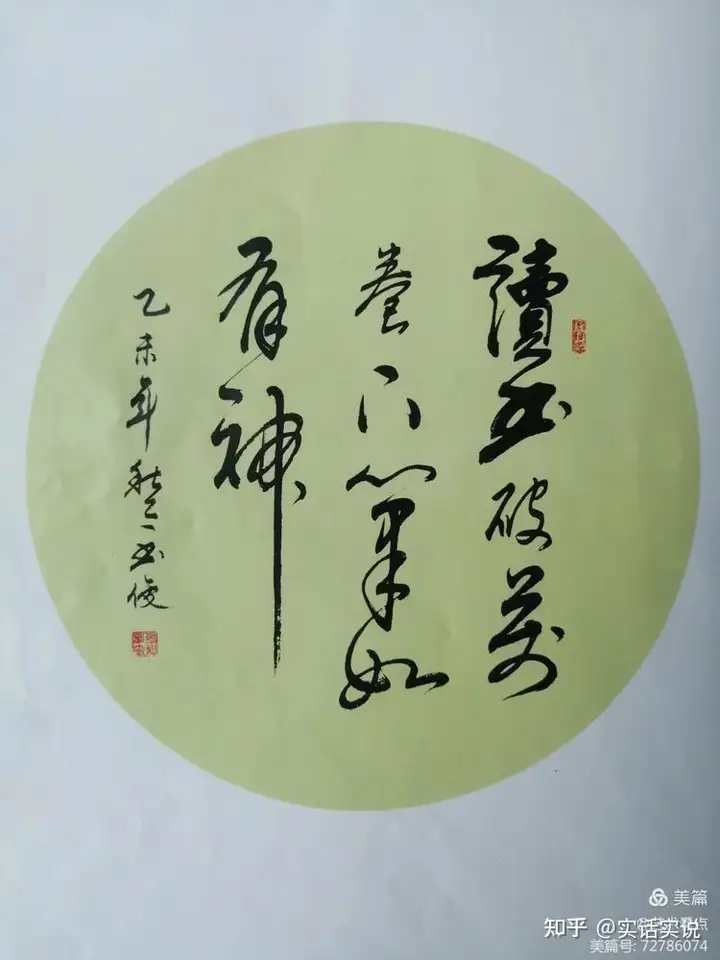 讀書破萬
卷下筆如
有神
乙未年秋書俊
美篇
知乎 @实话实说
美篇号: 72786074